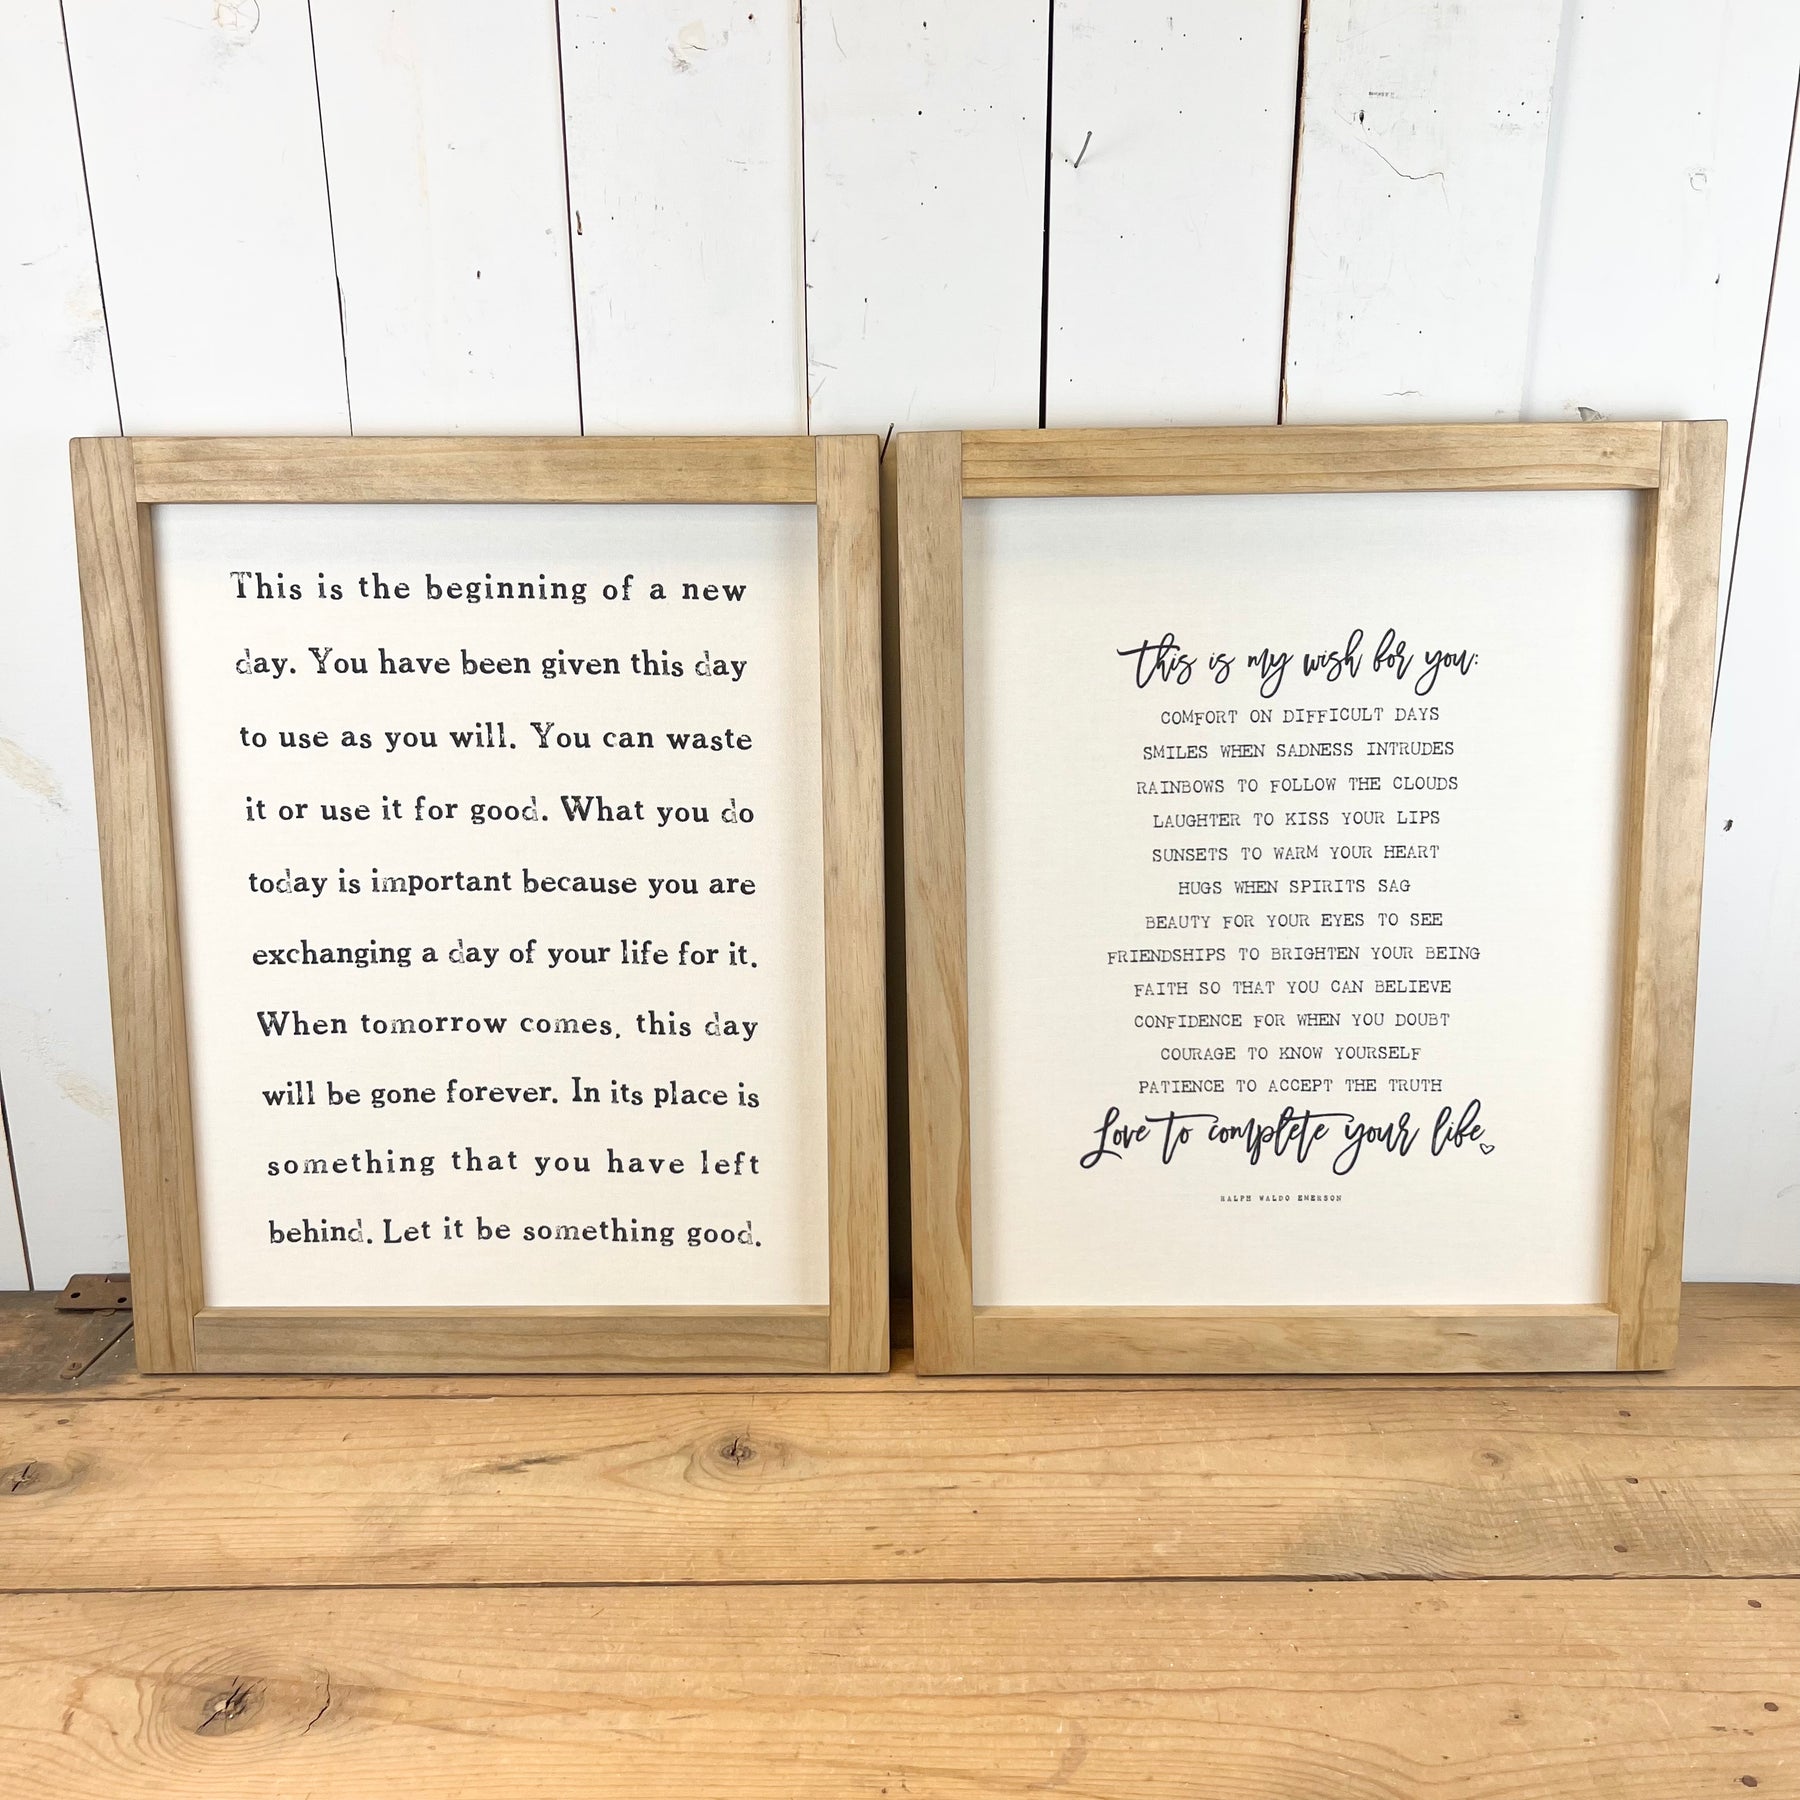 This is the beginning of a new
day. You have been given this day
to use as you will. You can waste
it or use it for good. What you do
today is important because you are
exchanging a day of your life for it.
When tomorrow comes, this day
will be gone forever. In its place is
something that you have left
behind. Let it be something good.
this is my wish for you:
COMFORT ON DIFFICULT DAYS
SMILES WHEN SADNESS INTRUDES
RAINBOWS TO FOLLOW THE CLOUDS
LAUGHTER TO KISS YOUR LIPS
SUNSETS TO WARM YOUR HEART
HUGS WHEN SPIRITS SAG
BEAUTY FOR YOUR EYES TO SEE
FRIENDSHIPS TO BRIGHTEN YOUR BEING
FAITH SO THAT YOU CAN BELIEVE
CONFIDENCE FOR WHEN YOU DOUBT
COURAGE TO KNOW YOURSELF
PATIENCE TO ACCEPT THE TRUTH
Love to complete your life.
RALPH WALDO EMERSON